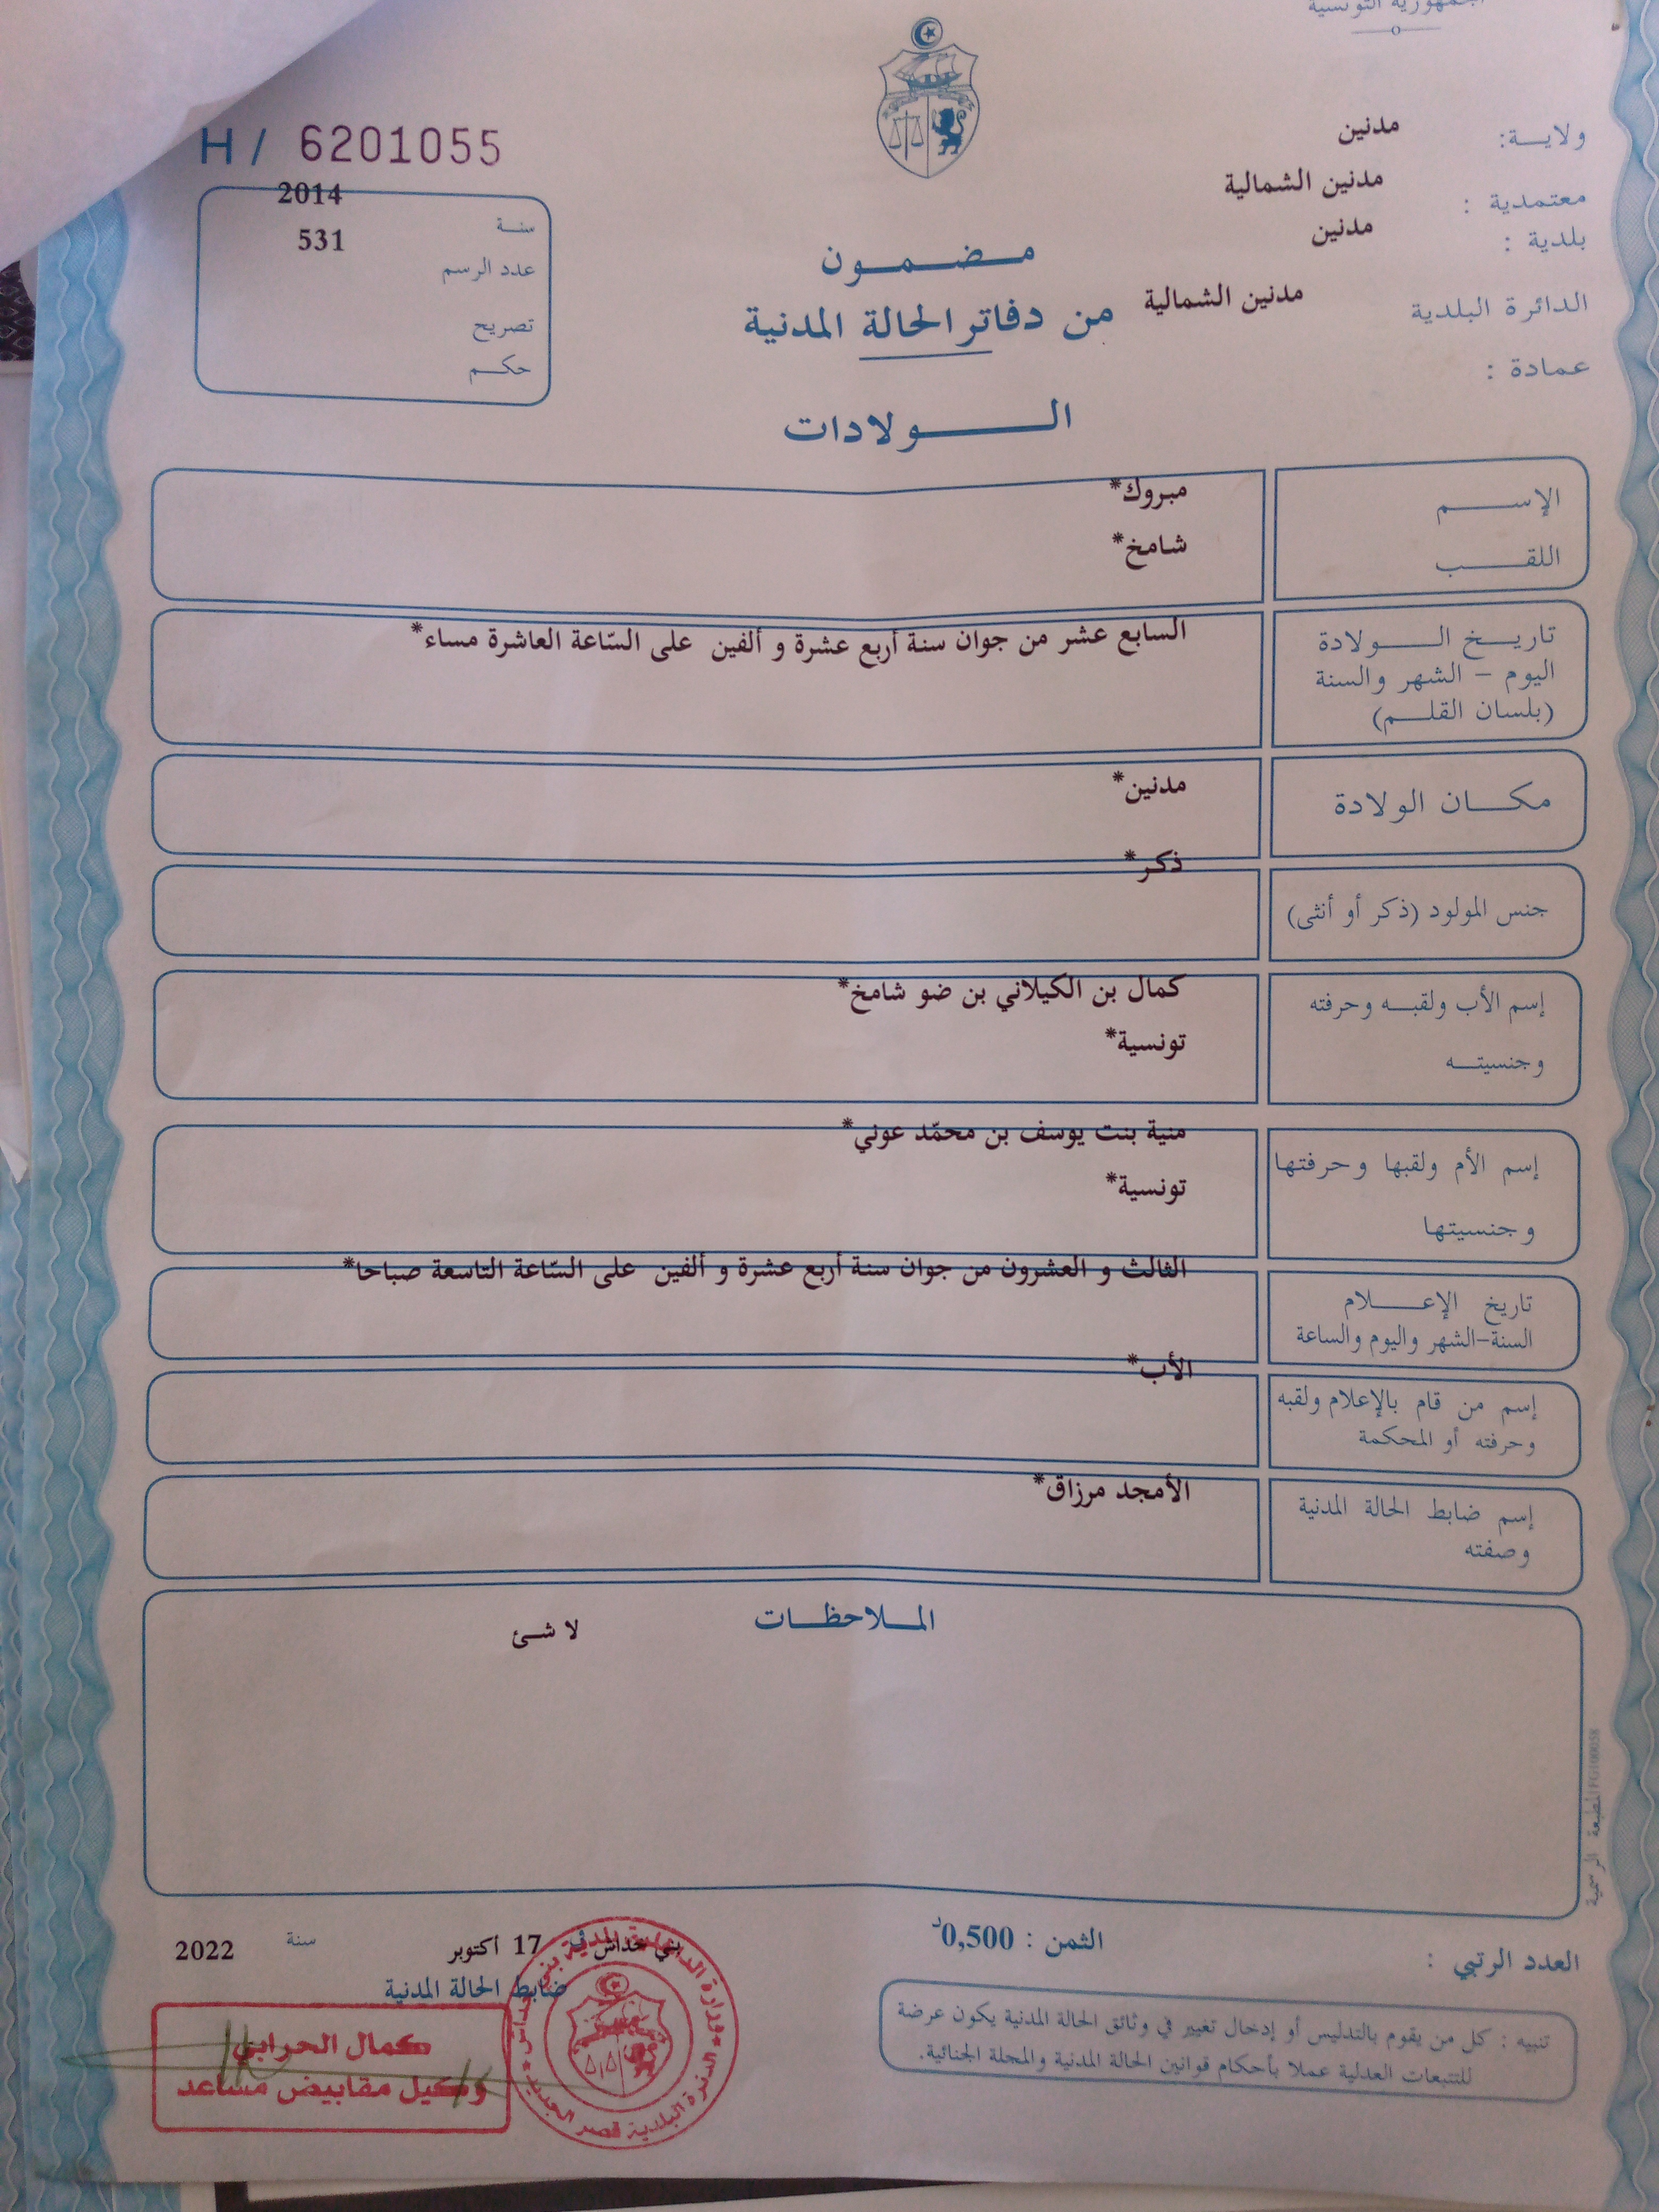 الجمهورية التونسية
ولايـــة: مدنين
معتمدية : مدنين الشمالية
بلدية : مدنين
الدائرة البلدية مدنين الشمالية
عمادة :
H / 6201055
سنــة 2014
عدد الرسم 531
تصريح
حكــم
مـضـمـون
من دفاتر الحالة المدنية
الــولادات
الإســـم مبروك*
اللقـــب شامخ*
تاريــخ الـــولادة
اليوم – الشهر والسنة
(بلسان القلــم)
السابع عشر من جوان سنة أربع عشرة و ألفين على السّاعة العاشرة مساء*
مكـــان الولادة مدنين*
جنس المولود (ذكر أو أنثى) ذكر*
إسم الأب ولقبــه وحرفته كمال بن الكيلاني بن ضو شامخ*
وجنسيتــه تونسية*
إسم الأم ولقبها وحرفتها منية بنت يوسف بن محمّد عوني*
وجنسيتها تونسية*
تاريخ الإعـــلام
السنة-الشهر واليوم والساعة
الثالث و العشرون من جوان سنة أربع عشرة و ألفين على السّاعة التاسعة صباحا*
إسم من قام بالإعلام ولقبه
وحرفته أو المحكمة
الأب*
إسم ضابط الحالة المدنية
وصفته
الأمجد مرزاق*
المــلاحظــات
لا شئ
العدد الرتبي :
الثمن : 0,500د
بني خداش في 17 أكتوبر سنة 2022
ضابط الحالة المدنية
كمال الحرابي
وكيل مقابيض مساعد
الدائرة البلدية قصر الجديد
تنبيه : كل من يقوم بالتدليس أو إدخال تغيير في وثائق الحالة المدنية يكون عرضة
للتتبعات العدلية عملا بأحكام قوانين الحالة المدنية والمجلة الجنائية.
المطبعة الرسمية